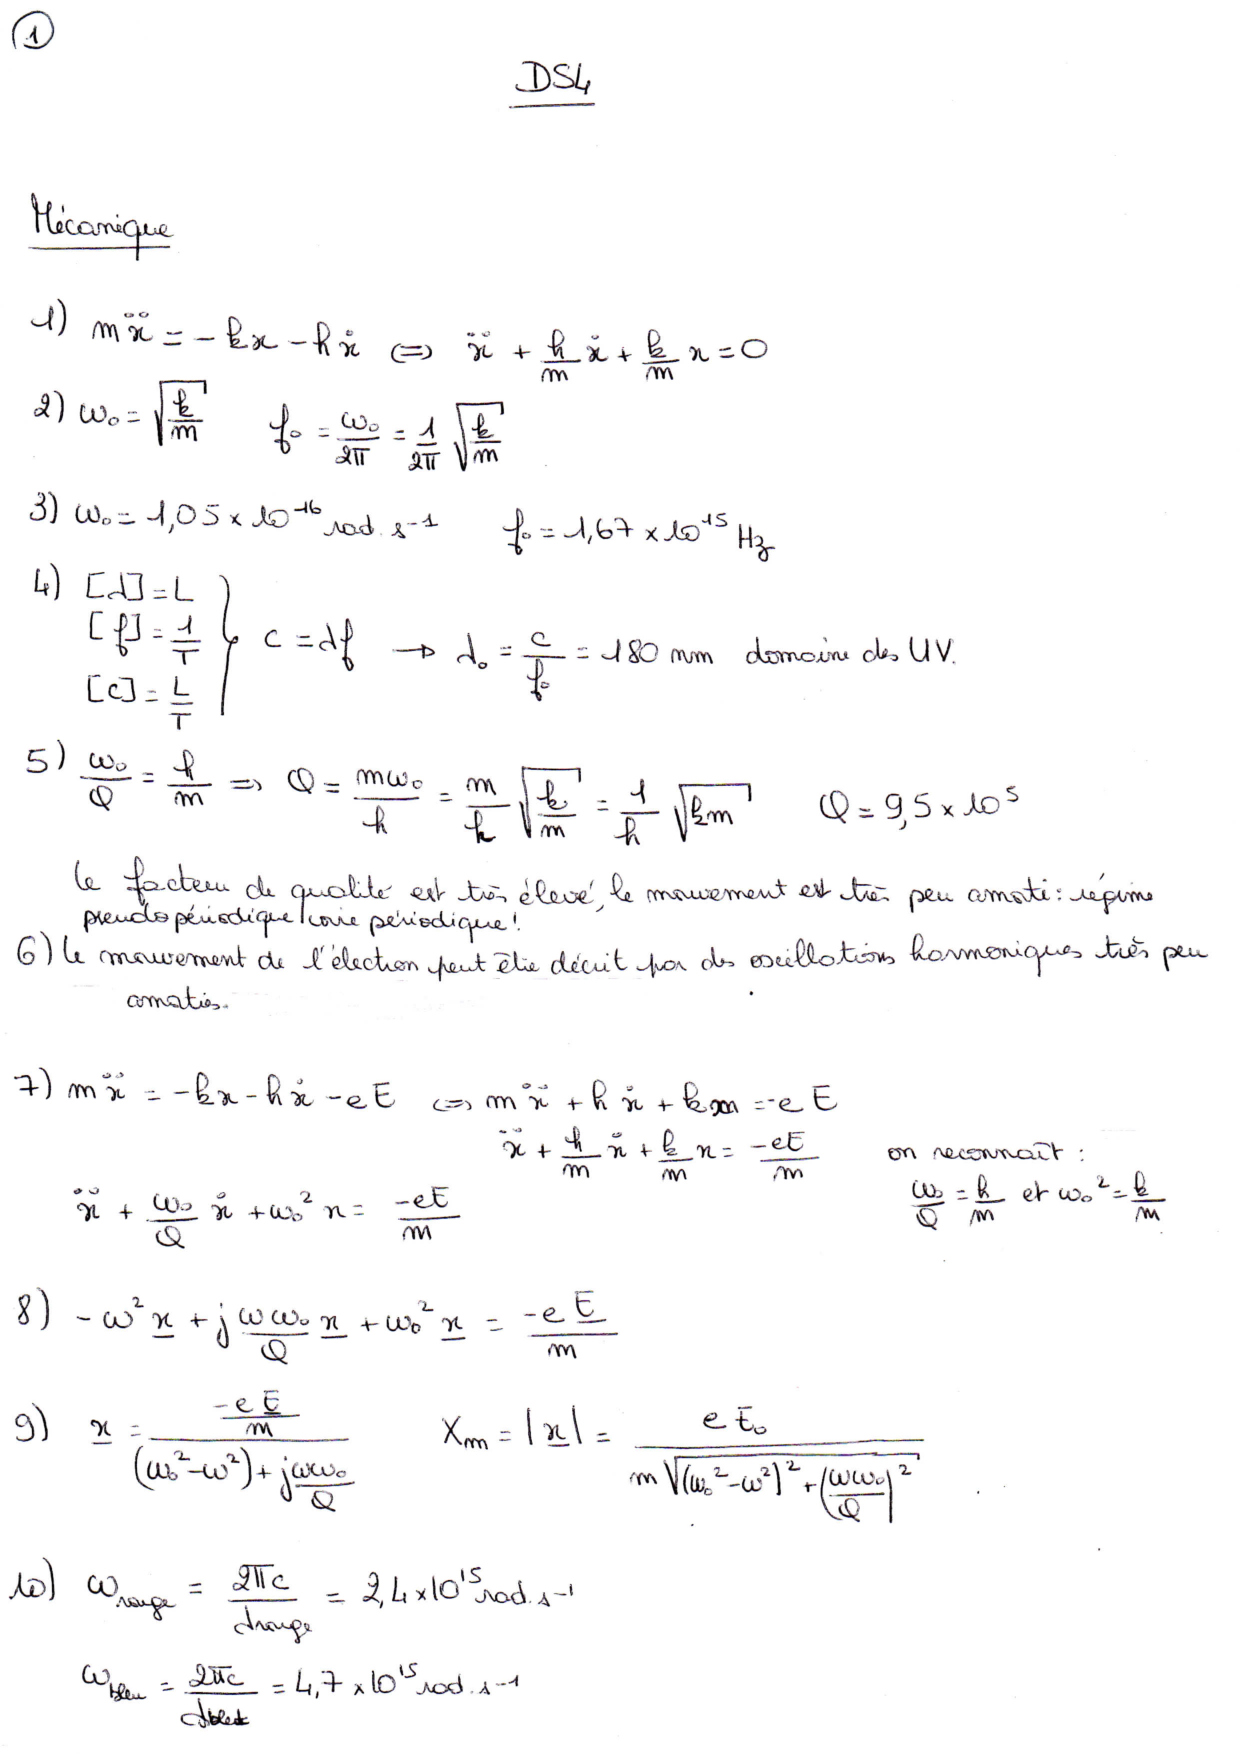 ①
DS4
Mécanique
1) mẍ = -kx - hẋ ⇔ ẍ + h/m ẋ + k/m x = 0
2) ω₀ = √(k/m) f₀ = ω₀/2π = 1/2π √(k/m)
3) ω₀ = 1,05 × 10⁻¹⁶ rad.s⁻¹ f₀ = 1,67 × 10¹⁵ Hz
4) [λ] = L
[f] = 1/T } c = λf → λ₀ = c/f₀ = 180 nm domaine des UV.
[c] = L/T
5) ω₀/Q = h/m ⇒ Q = mω₀/h = m/h √(k/m) = 1/h √(km) Q = 9,5 × 10⁵
Le facteur de qualité est très élevé, le mouvement est très peu amorti : régime
pseudo périodique voire périodique !
6) Le mouvement de l'électron peut être décrit par des oscillations harmoniques très peu
amorties.
7) mẍ = -kx - hẋ - eE ⇔ mẍ + hẋ + kx = -eE
ẍ + h/m ẋ + k/m x = -eE/m on reconnaît :
ẍ + ω₀/Q ẋ + ω₀² x = -eE/m ω₀/Q = h/m et ω₀² = k/m
8) -ω² x + j ωω₀/Q x + ω₀² x = -eE/m
9) x = (-eE/m)/((ω₀² - ω²) + jωω₀/Q) Xm = |x| = eE₀/(m√((ω₀² - ω²)² + (ωω₀/Q)²))
10) ωrouge = 2πc/λrouge = 2,4 × 10¹⁵ rad.s⁻¹
ωbleu = 2πc/λbleu = 4,7 × 10¹⁵ rad.s⁻¹